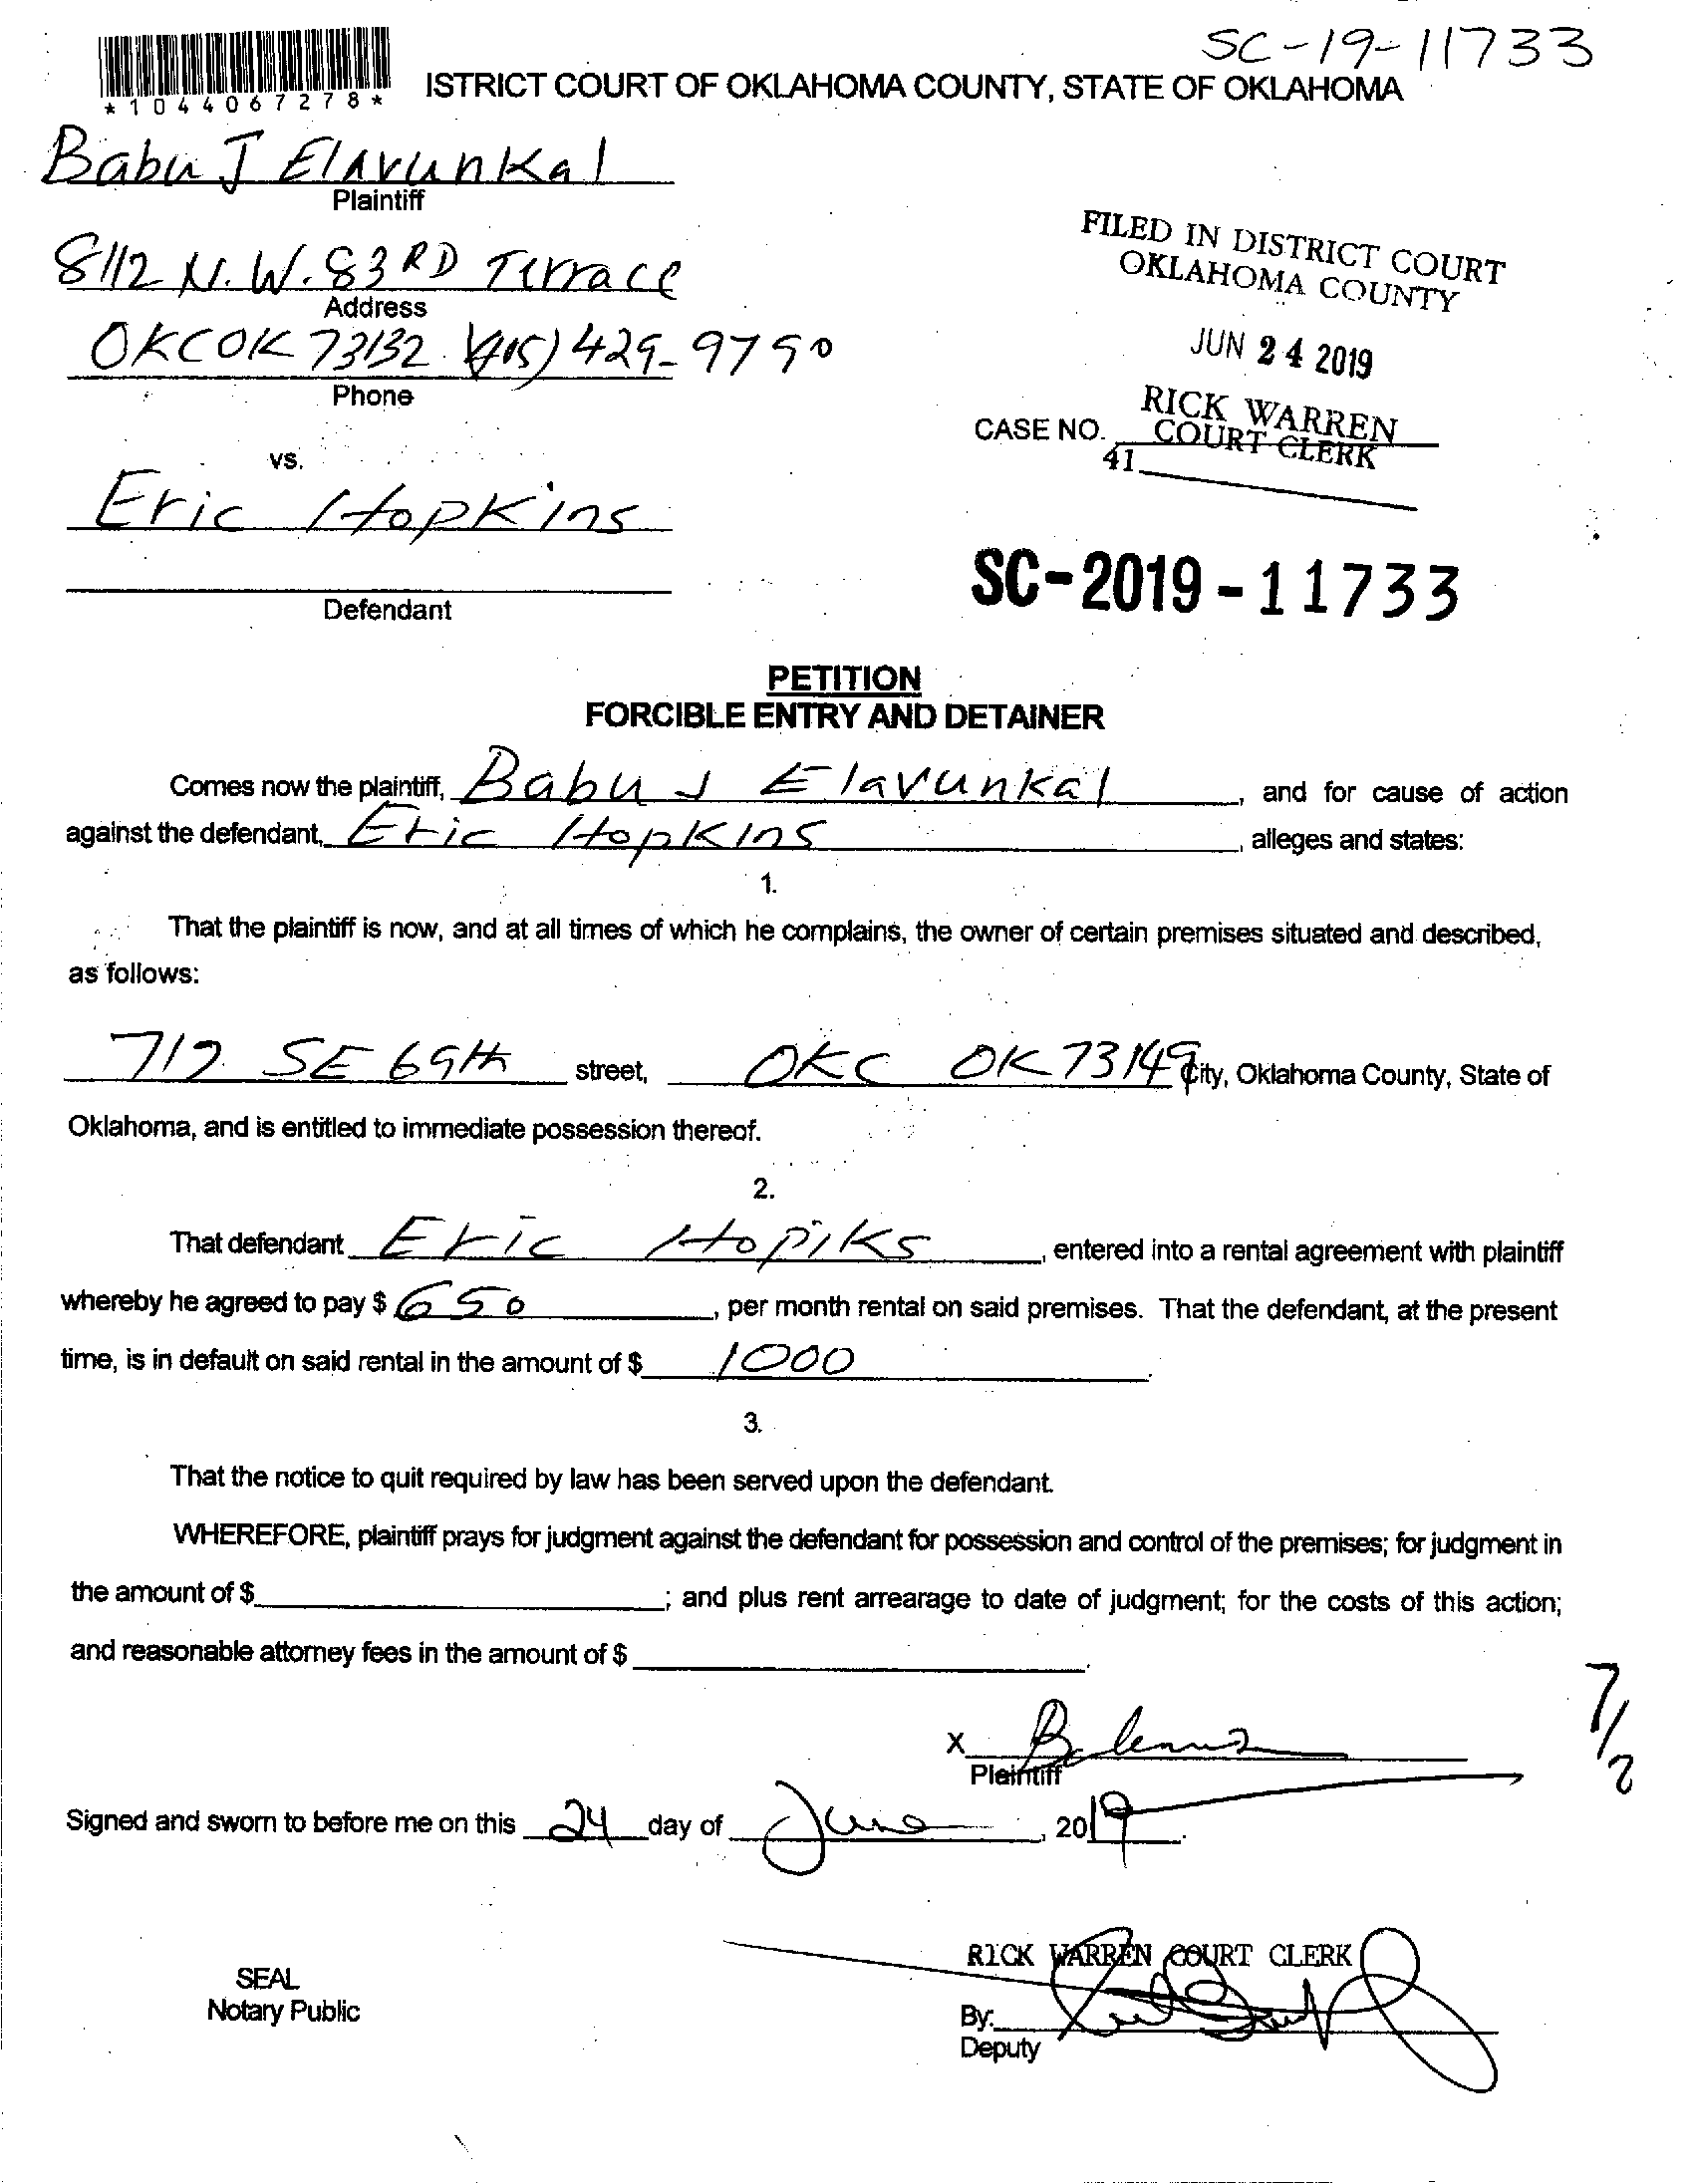 SC-19-11733
*1044067278*
ISTRICT COURT OF OKLAHOMA COUNTY, STATE OF OKLAHOMA
Babu J Elavunkal
Plaintiff
8112 N.W. 83RD Terrace
Address
OKC OK 73132 (405) 429-9790
Phone
vs.
Eric Hopkins
Defendant
FILED IN DISTRICT COURT
OKLAHOMA COUNTY
JUN 24 2019
RICK WARREN
COURT CLERK
CASE NO.
41
SC-2019-11733
PETITION
FORCIBLE ENTRY AND DETAINER
Comes now the plaintiff, Babu J Elavunkal, and for cause of action
against the defendant, Eric Hopkins, alleges and states:
1.
That the plaintiff is now, and at all times of which he complains, the owner of certain premises situated and described,
as follows:
712 SE 69th street, OKC OK 73149 City, Oklahoma County, State of
Oklahoma, and is entitled to immediate possession thereof.
2.
That defendant Eric Hopiks, entered into a rental agreement with plaintiff
whereby he agreed to pay $ 650, per month rental on said premises. That the defendant, at the present
time, is in default on said rental in the amount of $ 1000.
3.
That the notice to quit required by law has been served upon the defendant.
WHEREFORE, plaintiff prays for judgment against the defendant for possession and control of the premises; for judgment in
the amount of $ ; and plus rent arrearage to date of judgment; for the costs of this action;
and reasonable attorney fees in the amount of $ .
7/2
X
Plaintiff
Signed and sworn to before me on this 24 day of June, 2019.
RICK WARREN COURT CLERK
SEAL
Notary Public
By:
Deputy